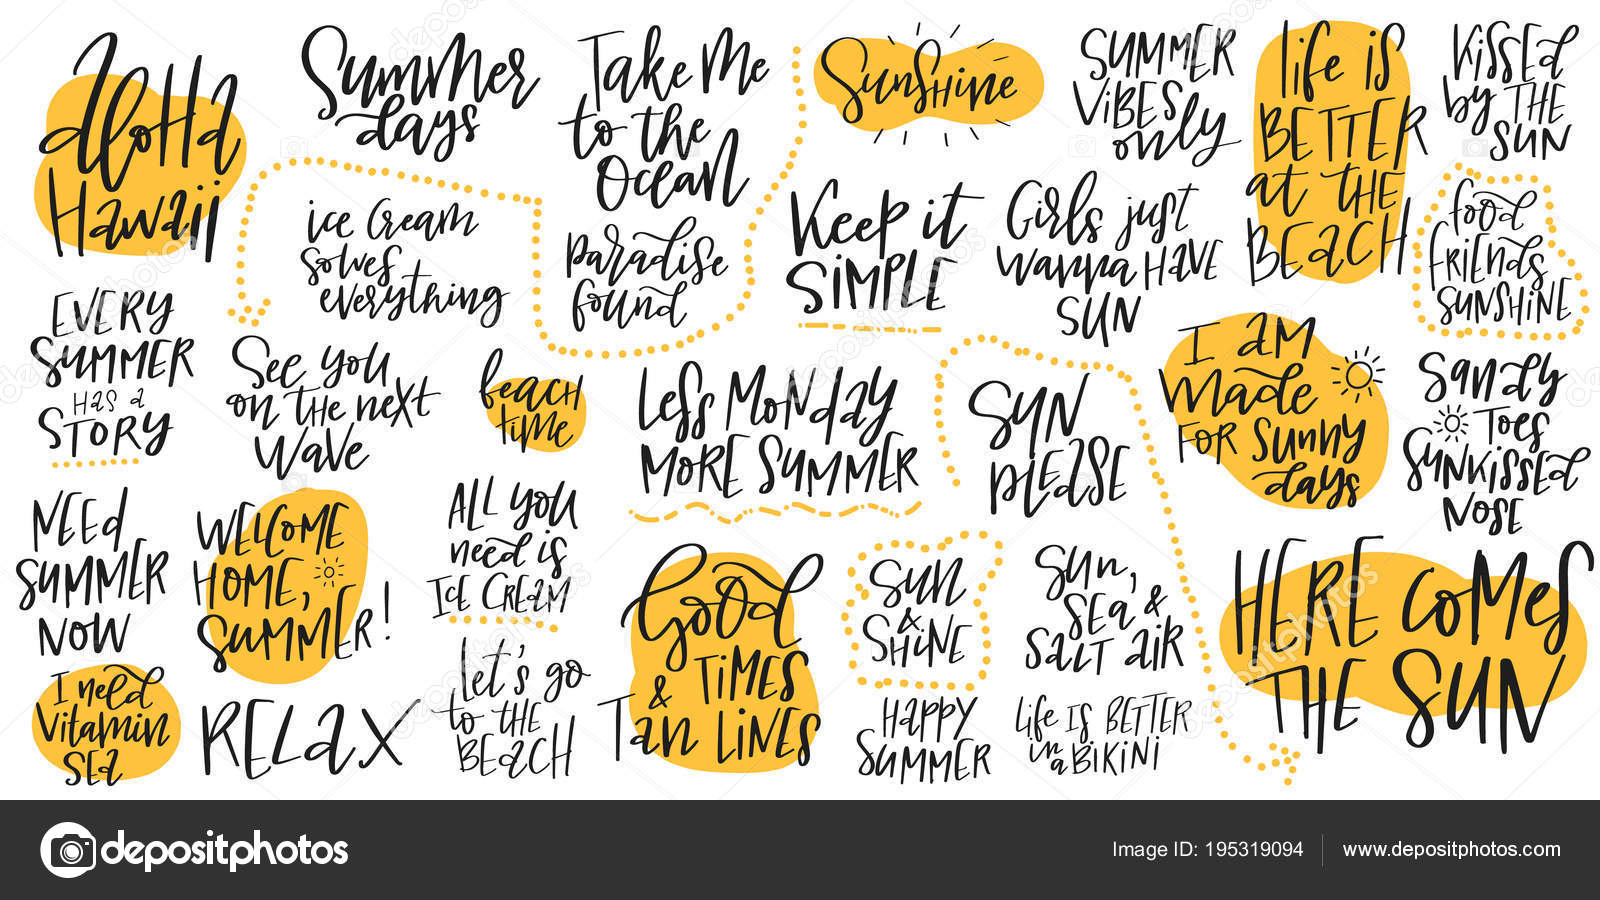 aloha
Hawaii
Summer
days
Take Me
to the
Ocean
Sunshine
SUMMER
ViBES
only
life is
BETTER
at THE
BEACH
Kissed
by THE
SUN
ice Cream
solves
everything
paradise
found
Keep it
SiMPLE
Girls just
wanna HAVE
SUN
food
FRiENDS
SUNSHiNE
EVERY
SUMMER
HAS a
STORY
See you
on THE next
WAVE
beacH
time
LESS MONDAY
MORE SUMMER
SUN
PLEASE
I AM
Made
FOR Sunny
days
SANDY
TOES
SUNKiSSED
NOSE
NEED
SUMMER
NOW
WELCOME
HOME,
SUMMER!
ALL you
need is
ICE CREAM
Good
& TiMES
Tan LiNES
SUN
&
SHiNE
Sun,
SEA &
SALT AiR
HERE COMES
THE SUN
I need
Vitamin
SEa
RELAX
Let's go
to THE
BEACH
HAPPY
SUMMER
Life IS BETTER
in a BiKiNi
depositphotos
Image ID: 195319094
www.depositphotos.com